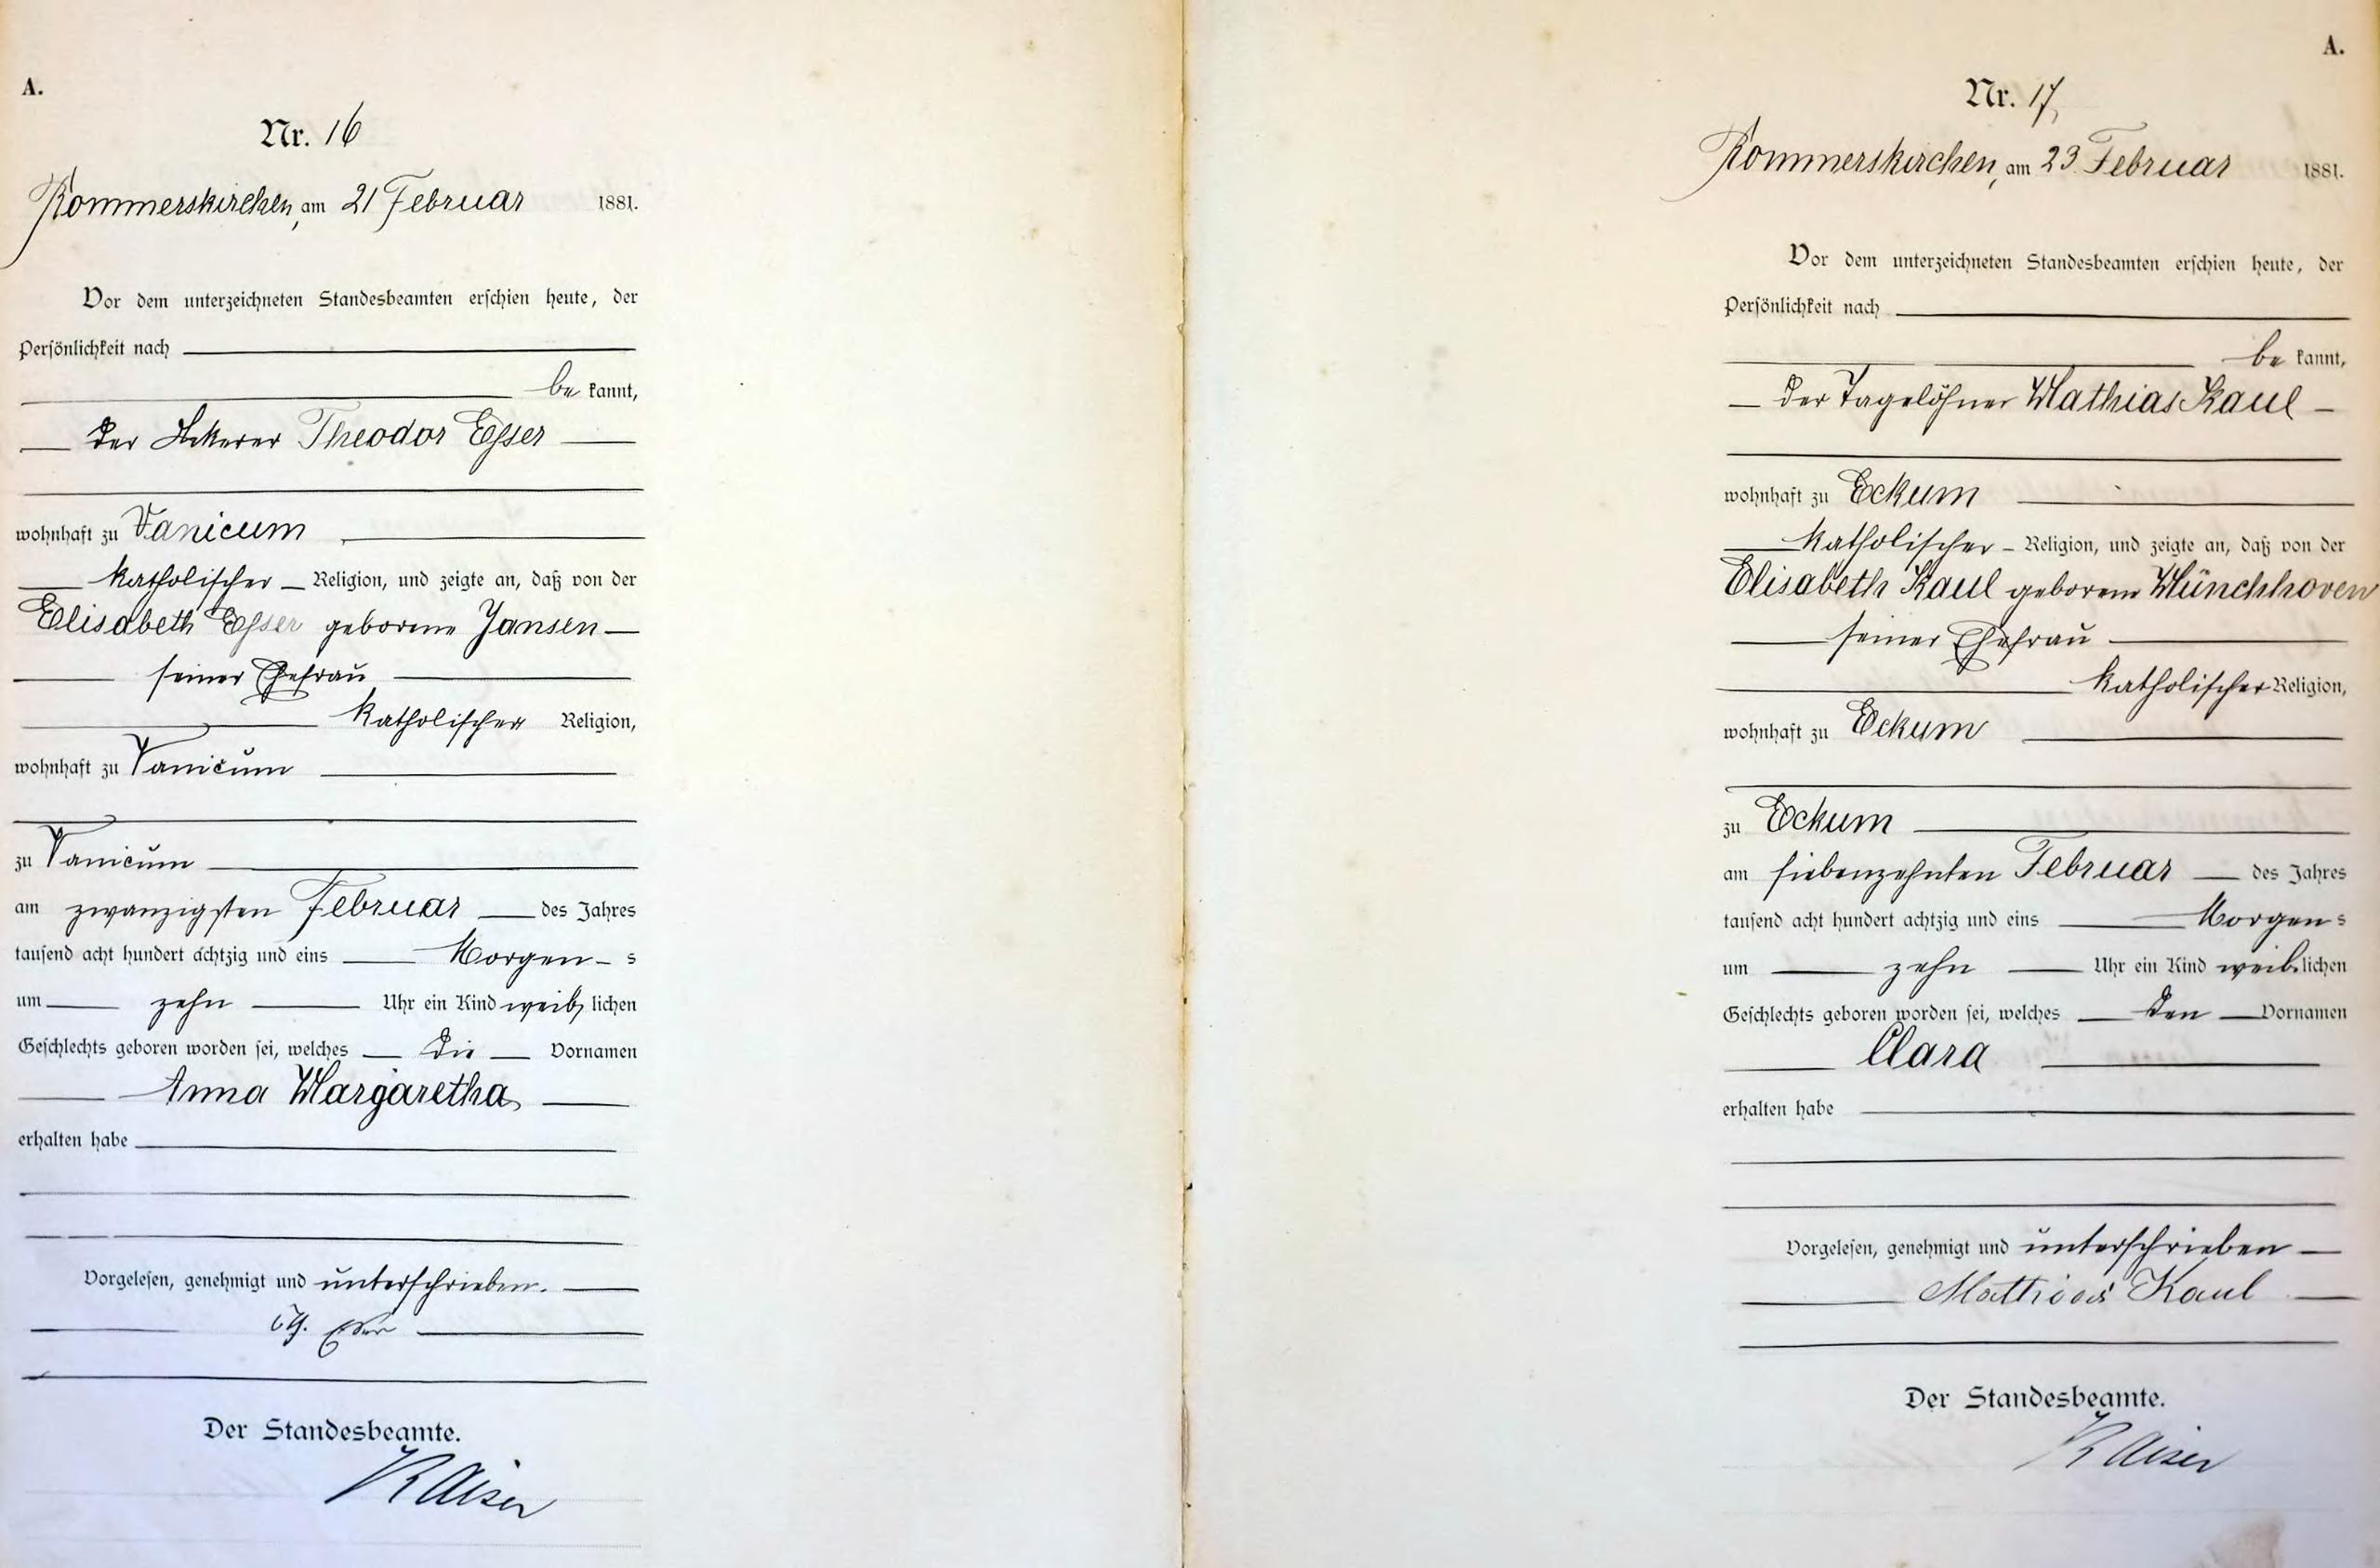 A.
Nr. 16
Rommerskirchen, am 21 Februar 1881.
Vor dem unterzeichneten Standesbeamten erschien heute, der
Persönlichkeit nach
be kannt,
der Ackerer Theodor Esser
wohnhaft zu Vanicum
katholischer Religion, und zeigte an, daß von der
Elisabeth Esser geborene Jansen
seiner Ehefrau
katholischer Religion,
wohnhaft zu Vanicum
zu Vanicum
am zwanzigsten Februar des Jahres
tausend acht hundert achtzig und eins Morgen s
um zehn Uhr ein Kind weib lichen
Geschlechts geboren worden sei, welches die Vornamen
Anna Margaretha
erhalten habe
Vorgelesen, genehmigt und unterschrieben.
Th. Esser
Der Standesbeamte.
Kaiser
A.
Nr. 17
Rommerskirchen, am 23 Februar 1881.
Vor dem unterzeichneten Standesbeamten erschien heute, der
Persönlichkeit nach
be kannt,
der Tagelöhner Mathias Kaul
wohnhaft zu Eckum
katholischer Religion, und zeigte an, daß von der
Elisabeth Kaul geborene Münchhoven
seiner Ehefrau
katholischer Religion,
wohnhaft zu Eckum
zu Eckum
am siebenzehnten Februar des Jahres
tausend acht hundert achtzig und eins Morgen s
um zehn Uhr ein Kind weib lichen
Geschlechts geboren worden sei, welches den Vornamen
Clara
erhalten habe
Vorgelesen, genehmigt und unterschrieben
Mathias Kaul
Der Standesbeamte.
Kaiser